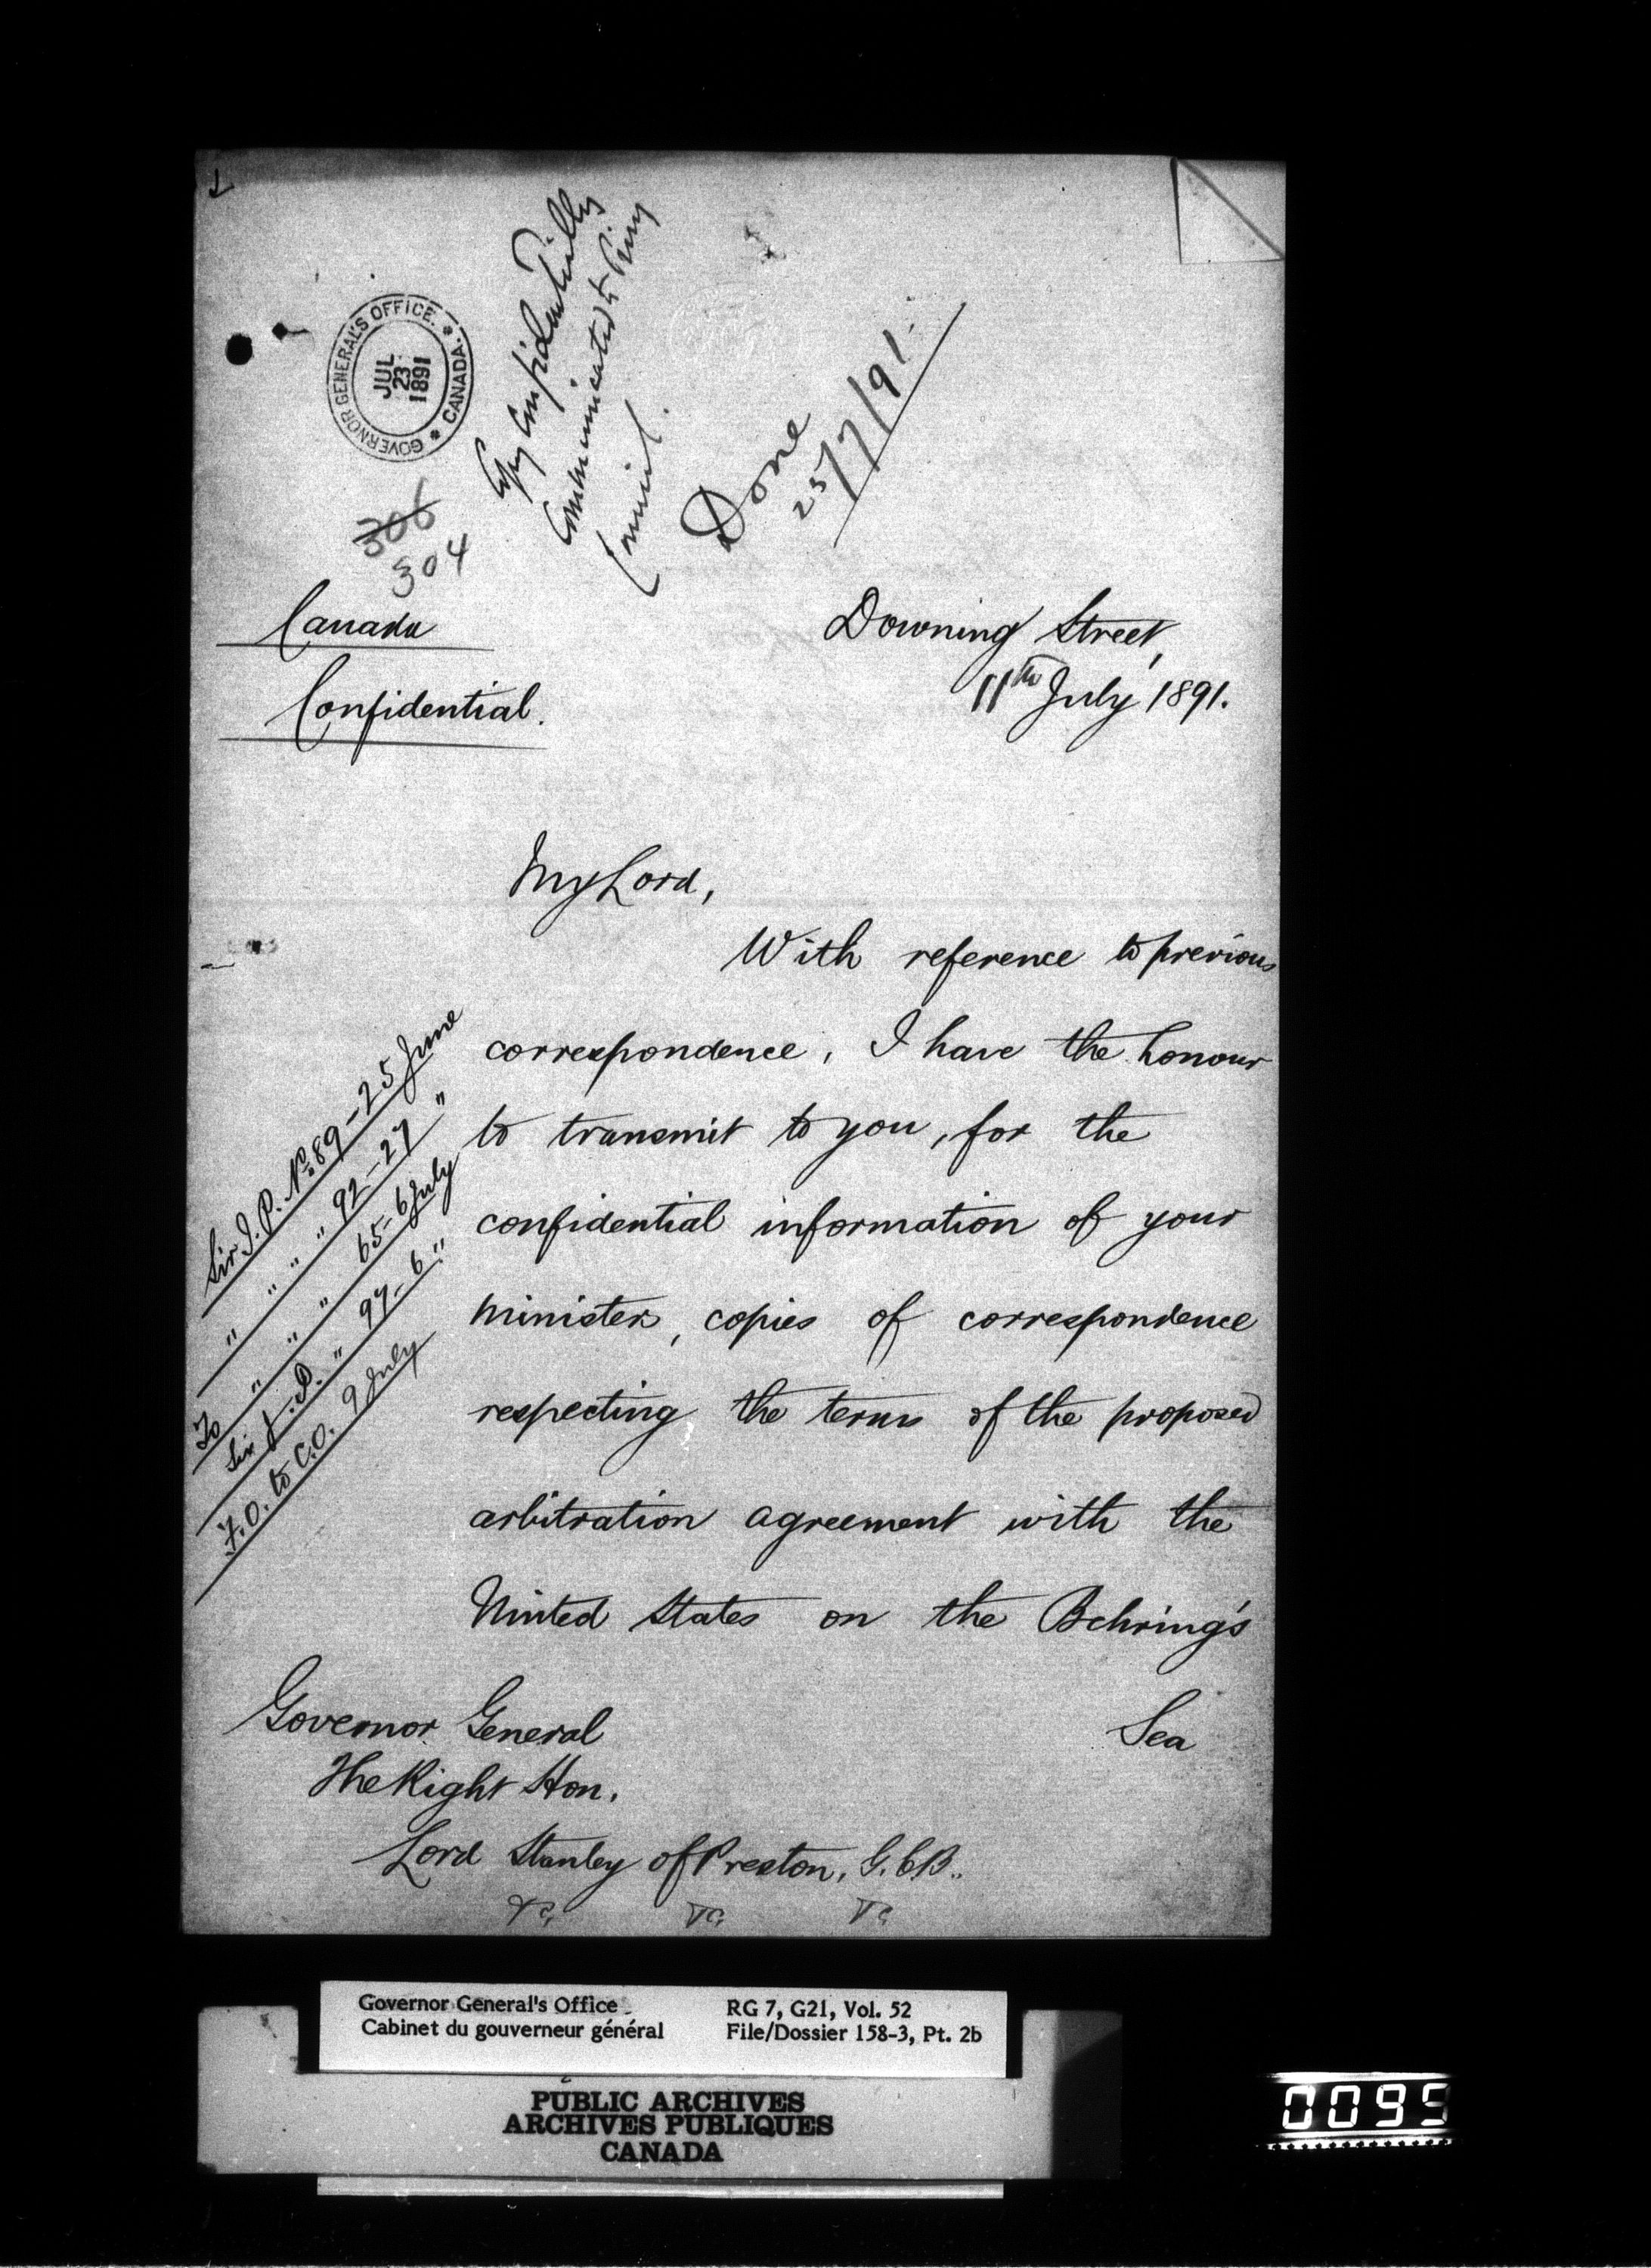 GOVERNOR GENERAL'S OFFICE.
* CANADA. *
JUL
23
1891
Copy Confidentially
Communicated to Privy
Council.
Done
25/7/91.
306
304
Canada
Confidential.
Downing Street,
11th July 1891.
My Lord,
With reference to previous
correspondence, I have the honour
to transmit to you, for the
confidential information of your
Minister, copies of correspondence
respecting the terms of the proposed
arbitration agreement with the
United States on the Behring's
Sea
Sir J. P. No. 89 - 25 June
" " " " 92 - 27 "
To " " " 65 - 6 July
Sir J. P. " 97 - 6 "
F.O. to C.O. 9 July
Governor General
The Right Hon.
Lord Stanley of Preston, G.C.B.,
&c. &c. &c.
Governor General's Office
Cabinet du gouverneur général
RG 7, G21, Vol. 52
File/Dossier 158-3, Pt. 2b
PUBLIC ARCHIVES
ARCHIVES PUBLIQUES
CANADA
0099